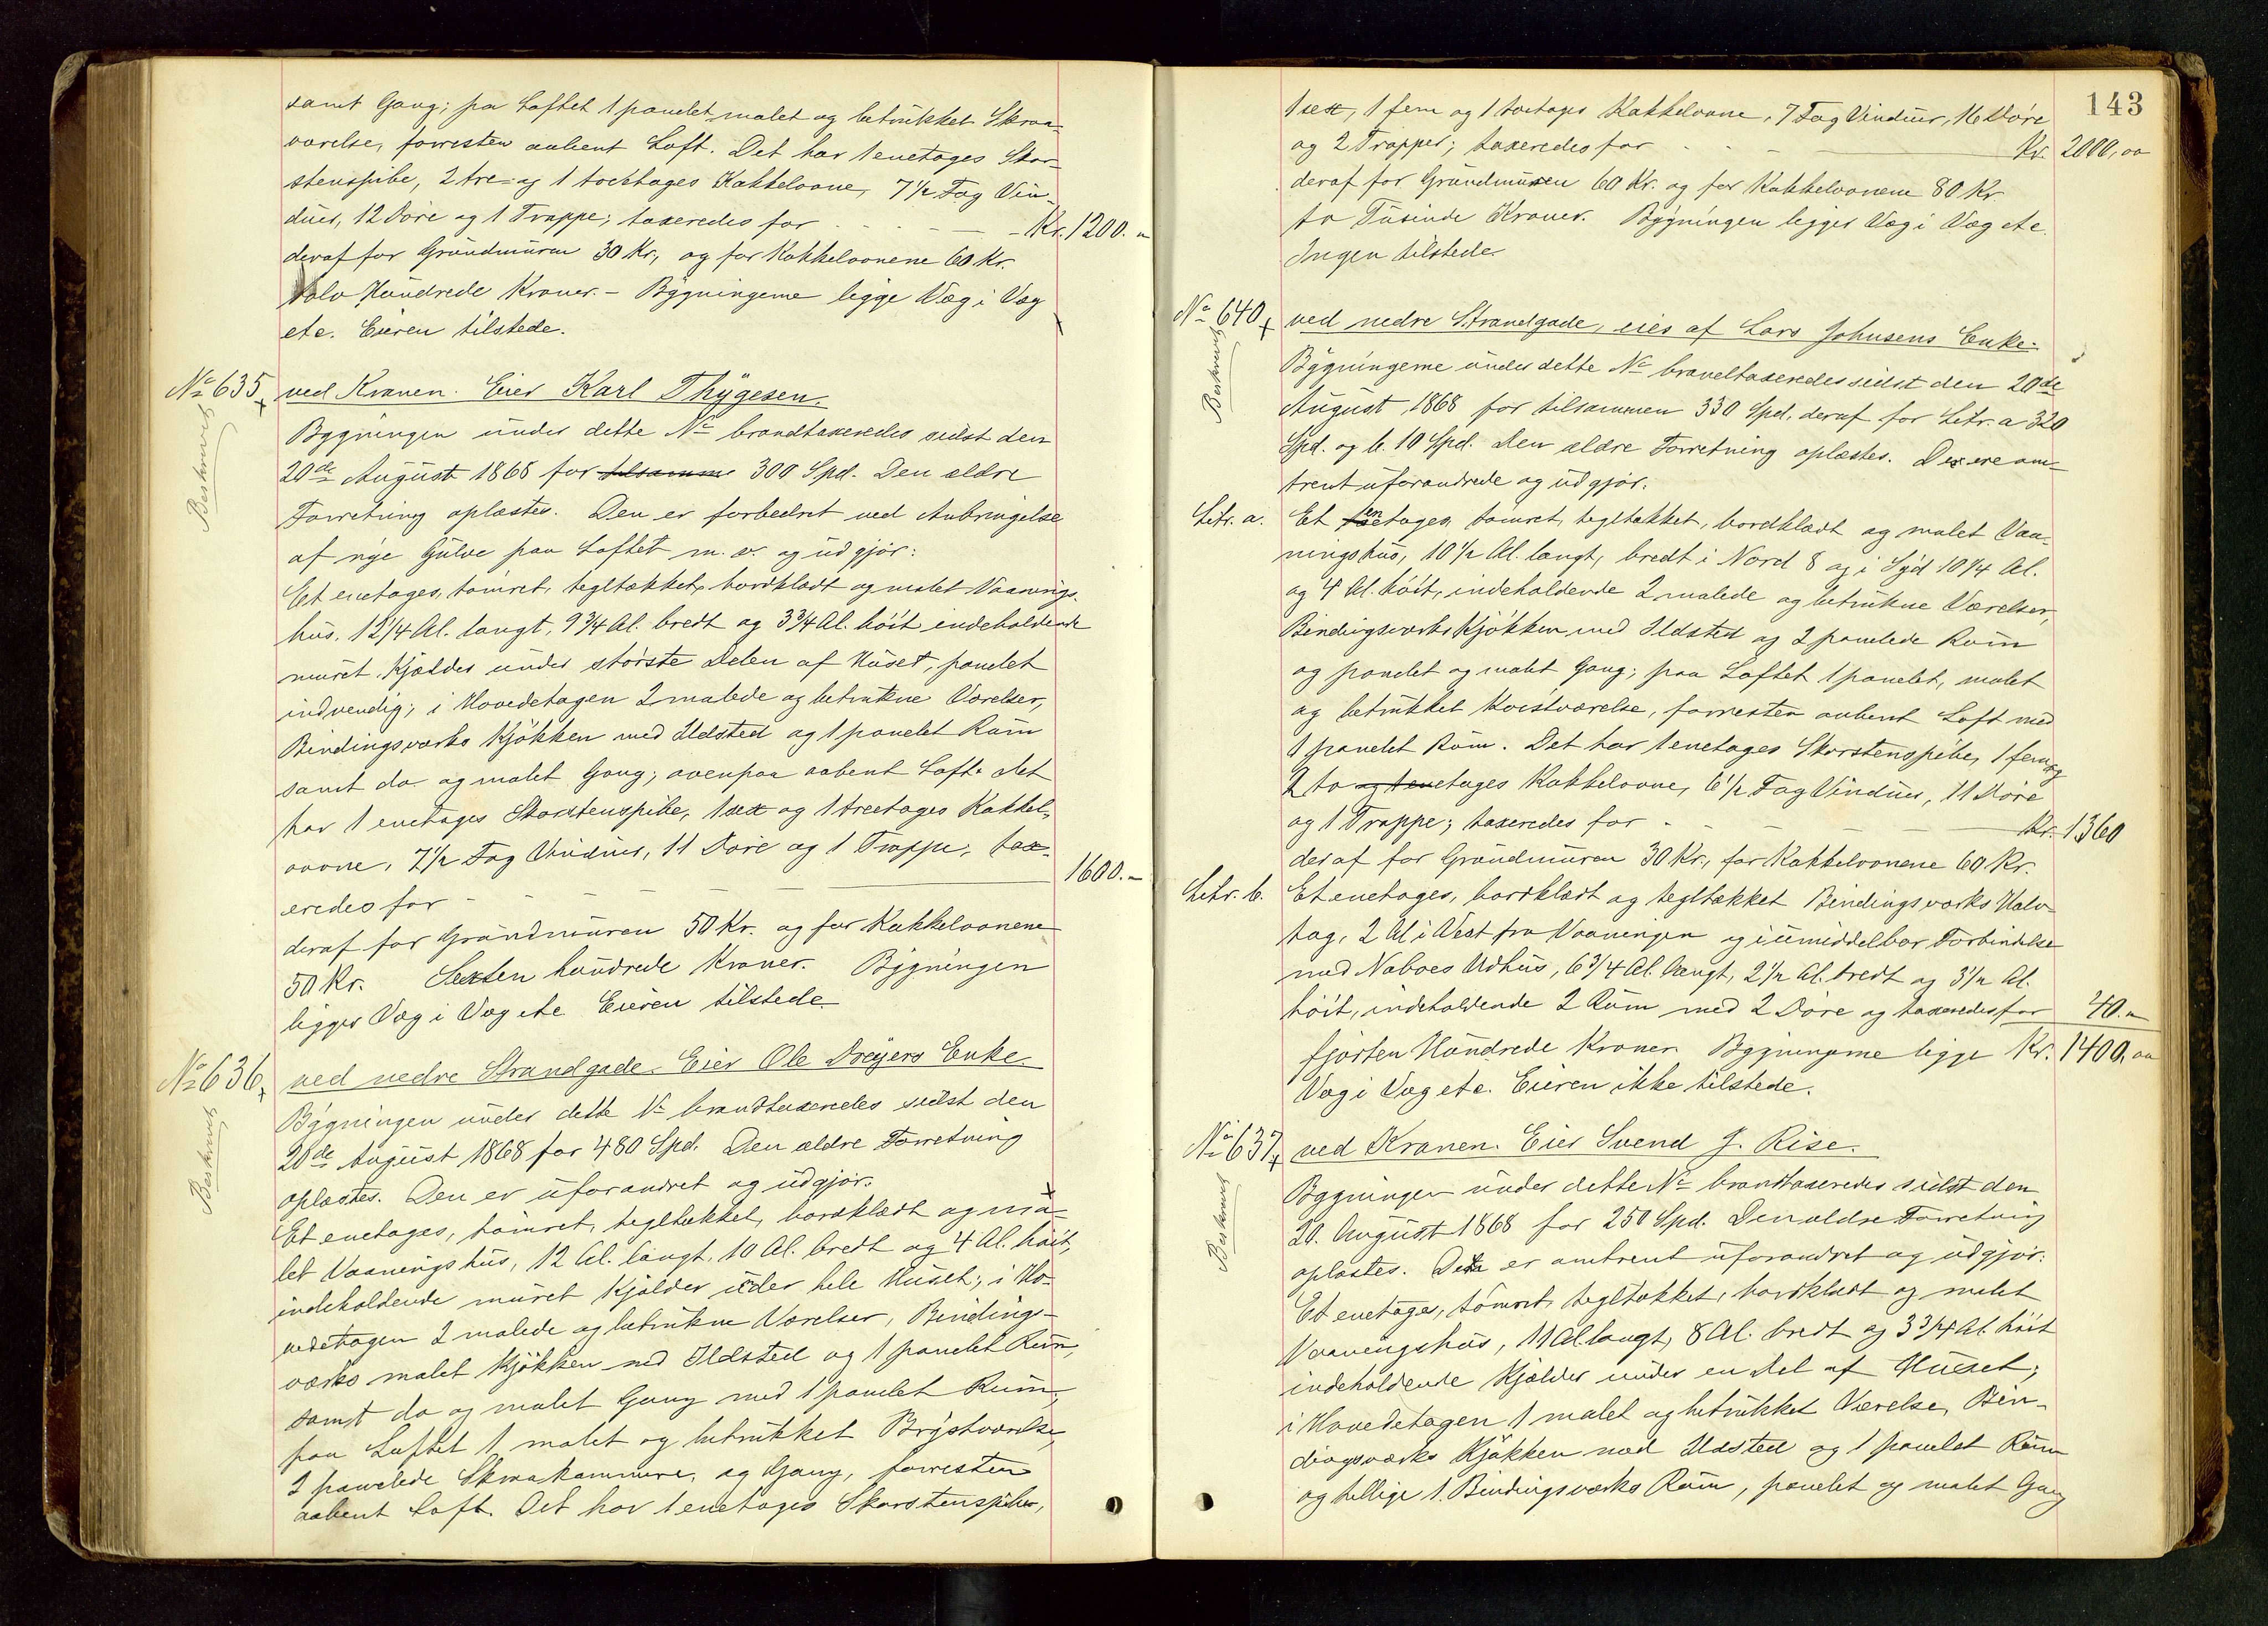 samt Gang; paa Loftet 1 panelet malet og betrukket Skraa-
værelse, forresten aabent Loft. Det har 1 enetages Skor-
stenspibe, 2 tre- og 1 toetages Kakkelovne, 7 1/2 Fag Vin-
duer, 12 Döre og 1 Trappe; taxeredes for - - - - Kr. 1200. "
deraf for Grundmuren 30 Kr., og for Kakkelovnene 60 Kr.
Tolv Hundrede Kroner. - Bygningerne ligge Væg i Væg
etc. Eieren tilstede.
No 635 ved Kranen. Eier Karl Thygesen.
Beskrevet
Bygningen under dette No brandtaxeredes sidst den
20de August 1868 for tilsamme 300 Spd. Den ældre
Forretning oplæstes. Den er forbedret ved Anbringelse
af nye Gulve paa Loftet m. v. og udgjör:
Et enetages, tömret, tegltækket, bordklædt og malet Vaanings-
hus, 12 1/4 Al. langt, 9 3/4 Al. bredt og 3 3/4 Al. höit indeholdende
muret Kjælder under störste Delen af Huset, panelet
indvendig; i Hovedetagen 2 malede og betrukne Værelser,
Bindingsværks Kjökken med Ildsted og 1 panelet Rum
samt do og malet Gang; ovenpaa aabent Loft. Det
har 1 enetages Skorstenspibe, 1 sex og 1 treetages Kakkel-
ovne, 7 1/2 Fag Vinduer, 11 Döre og 1 Trappe; tax-
eredes for - - - - - 1600. -
deraf for Grundmuren 50 Kr. og for Kakkelovnene
50 Kr. Sexten hundrede Kroner. Bygningen
ligger Væg i Væg etc Eieren tilstede.
No 636 ved nedre Strandgade. Eier Ole Dreyers Enke.
Beskrevet
Bygningen under dette No brandtaxeredes sidst den
20de August 1868 for 480 Spd. Den ældre Forretning
oplæstes. Den er uforandret og udgjör.
Et enetages, tömret, tegltækket, bordklædt og ma-
let Vaaningshus, 12 Al. langt, 10 Al. bredt og 4 Al. höit,
indeholdende muret Kjælder under hele Huset; i Ho-
vedetagen 2 malede og betrukne Værelser, Bindings-
værks malet Kjökken med Ildsted og 1 panelet Rum,
samt do og malet Gang med 1 panelet Rum;
paa Loftet 1 malet og betrukket Brystværelse,
2 panelede Skraakammere, og Gang, forresten
aabent Loft. Det har 1 enetages Skorstenspibe,
143
1 sex, 1 fem og 1 toetages Kakkelovne, 7 Fag Vinduer, 16 Döre
og 2 Trapper; taxeredes for - - - Kr. 2000,00
deraf for Grundmuren 60 Kr. og for Kakkelovnene 80 Kr.
to Tusinde Kroner. Bygningen ligger Væg i Væg etc.
Ingen tilstede.
No 640 ved nedre Strandgade, eies af Lars Johnsens Enke.
Beskrevet
Bygningerne under dette No brandtaxeredes sidst den 20de
August 1868 for tilsammen 330 Spd. deraf for Litr. a 320
Spd. og b. 10 Spd. Den ældre Forretning oplæstes. De ere om-
trent uforandrede og udgjör.
Litr. a. Et enetages tömret, tegltækket, bordklædt og malet Vaa-
ningshus, 10 1/2 Al. langt, bredt i Nord 8 og i Syd 10 1/4 Al.
og 4 Al. höit, indeholdende 2 malede og betrukne Værelser,
Bindingsværks Kjökken med Ildsted og 2 panelede Rum
og panelet og malet Gang; paa Loftet 1 panelet, malet
og betrukket Kvistværelse, forresten aabent Loft med
1 panelet Rum. Det har 1 enetages Skorstenspibe, 1 fem og
2 to og 1 enetages Kakkelovne, 6 1/2 Fag Vinduer, 11 Döre
og 1 Trappe; taxeredes for - - - - Kr. 1360
deraf for Grundmuren 30 Kr., for Kakkelovnene 60 Kr.
Litr. b. Et enetages, bordklædt og tegltækket Bindingsværks Halv-
tag, 2 Al i Vest fra Vaaningen og i umiddelbar Forbindelse
med Naboes Udhus, 6 3/4 Al. langt, 2 1/2 Al. bredt og 3 1/2 Al.
höit, indeholdende 2 Rum med 2 Döre og taxeredes for 40. "
fjorten Hundrede Kroner Bygningerne ligge Kr. 1400,00
Væg i Væg etc. Eieren ikke tilstede.
No 637 ved Kranen. Eier Svend J. Rise.
Beskrevet
Bygningen under dette No brandtaxeredes sidst den
20. August 1868 for 250 Spd. Den ældre Forretning
oplæstes. Den er omtrent uforandret og udgjör.
Et enetages, tömret, tegltækket, bordklædt og malet
Vaaningshus, 11 Al. langt, 8 Al. bredt og 3 3/4 Al. höit
indeholdende Kjælder under en Del af Huset;
i Hovedetagen 1 malet og betrukket Værelse, Bin-
dingsværks Kjökken med Ildsted og 1 panelet Rum
og tillige 1 Bindingsværks Rum, panelet og malet Gang